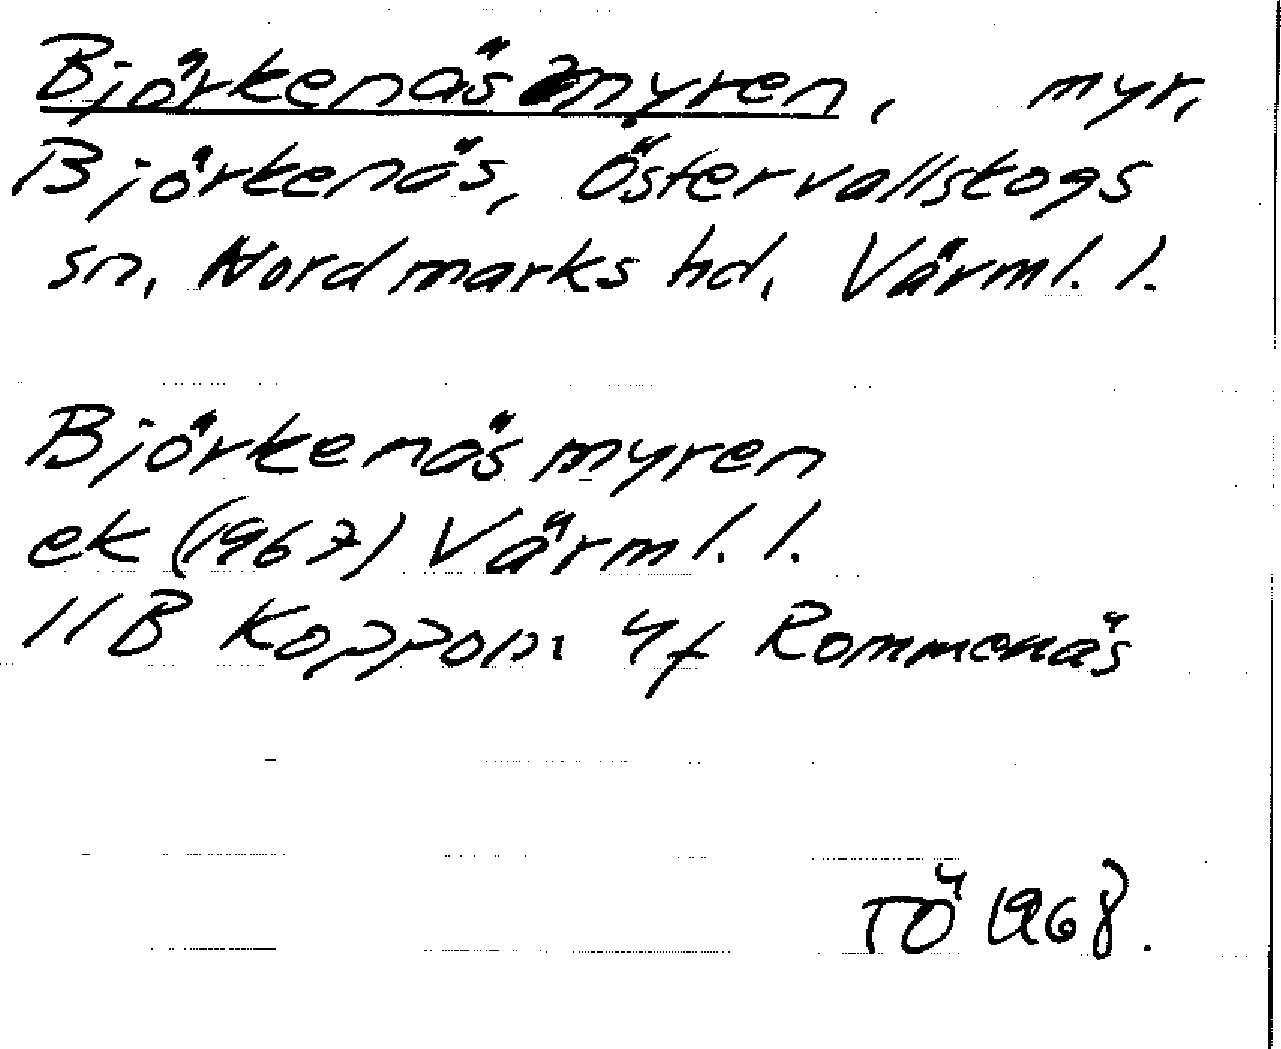 Björkenäsmyren, myr,
Björkenäs, Östervallskogs
sn, Nordmarks hd, Värml. l.
Björkenäsmyren
ek (1967) Värml. l.
11B Koppom 4f Rommenäs
TÖ 1968.